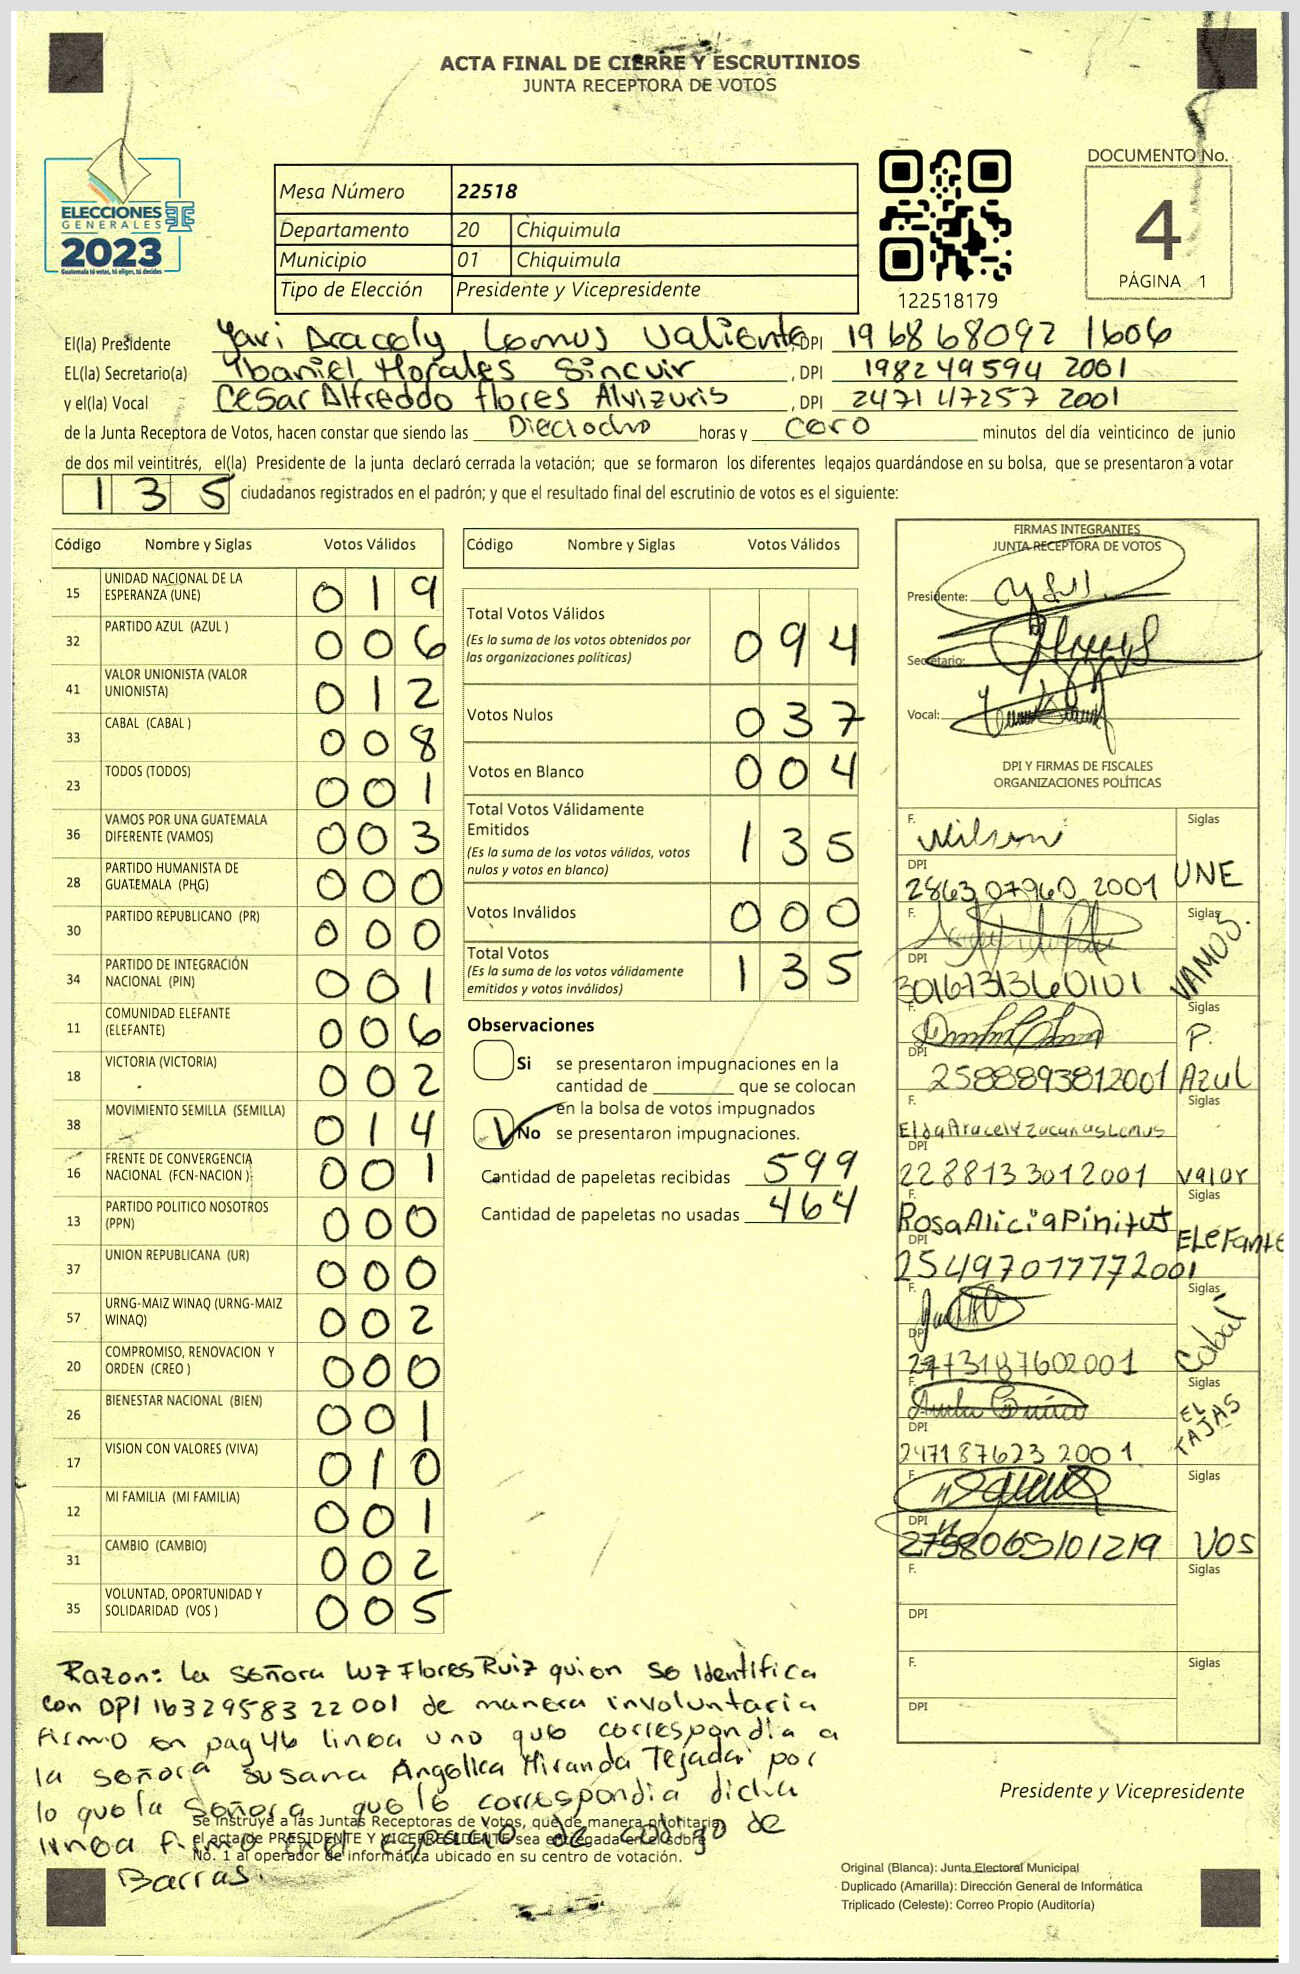 ACTA FINAL DE CIERRE Y ESCRUTINIOS
JUNTA RECEPTORA DE VOTOS
ELECCIONES
GENERALES
2023
Guatemala tú votas, tú eliges, tú decides
Mesa Número 22518
Departamento 20 Chiquimula
Municipio 01 Chiquimula
Tipo de Elección Presidente y Vicepresidente
122518179
DOCUMENTO No.
4
PÁGINA 1
El(la) Presidente Yari Aracely Lemus Valiente, DPI 19686 8092 1606
EL(la) Secretario(a) Ybaniel Morales Sincuir, DPI 198249594 2001
y el(la) Vocal Cesar Alfreddo flores Alvizuris, DPI 2471 47257 2001
de la Junta Receptora de Votos, hacen constar que siendo las Dieciocho horas y cero minutos del día veinticinco de junio
de dos mil veintitrés, el(la) Presidente de la junta declaró cerrada la votación; que se formaron los diferentes legajos guardándose en su bolsa, que se presentaron a votar
135 ciudadanos registrados en el padrón; y que el resultado final del escrutinio de votos es el siguiente:
Código Nombre y Siglas Votos Válidos
15 UNIDAD NACIONAL DE LA ESPERANZA (UNE) 019
32 PARTIDO AZUL (AZUL ) 006
41 VALOR UNIONISTA (VALOR UNIONISTA) 012
33 CABAL (CABAL ) 008
23 TODOS (TODOS) 001
36 VAMOS POR UNA GUATEMALA DIFERENTE (VAMOS) 003
28 PARTIDO HUMANISTA DE GUATEMALA (PHG) 000
30 PARTIDO REPUBLICANO (PR) 000
34 PARTIDO DE INTEGRACIÓN NACIONAL (PIN) 001
11 COMUNIDAD ELEFANTE (ELEFANTE) 006
18 VICTORIA (VICTORIA) 002
38 MOVIMIENTO SEMILLA (SEMILLA) 014
16 FRENTE DE CONVERGENCIA NACIONAL (FCN-NACION ) 001
13 PARTIDO POLITICO NOSOTROS (PPN) 000
37 UNION REPUBLICANA (UR) 000
57 URNG-MAIZ WINAQ (URNG-MAIZ WINAQ) 002
20 COMPROMISO, RENOVACION Y ORDEN (CREO ) 000
26 BIENESTAR NACIONAL (BIEN) 001
17 VISION CON VALORES (VIVA) 010
12 MI FAMILIA (MI FAMILIA) 001
31 CAMBIO (CAMBIO) 002
35 VOLUNTAD, OPORTUNIDAD Y SOLIDARIDAD (VOS ) 005
Código Nombre y Siglas Votos Válidos
Total Votos Válidos 094
(Es la suma de los votos obtenidos por
las organizaciones políticas)
Votos Nulos 037
Votos en Blanco 004
Total Votos Válidamente
Emitidos 135
(Es la suma de los votos válidos, votos
nulos y votos en blanco)
Votos Inválidos 000
Total Votos 135
(Es la suma de los votos válidamente
emitidos y votos inválidos)
Observaciones
Si se presentaron impugnaciones en la
cantidad de ________ que se colocan
en la bolsa de votos impugnados
No se presentaron impugnaciones.
Cantidad de papeletas recibidas 599
Cantidad de papeletas no usadas 464
FIRMAS INTEGRANTES
JUNTA RECEPTORA DE VOTOS
Presidente:
Secretario:
Vocal:
DPI Y FIRMAS DE FISCALES
ORGANIZACIONES POLÍTICAS
F. Wilson Siglas
DPI 2863 07960 2001 UNE
F. Siglas
DPI 3016731360101 VAMOS.
F. Siglas
DPI 2588893812001 P. Azul
F. Siglas
DPI 2288133012001 Valor
F. Rosa Alicia Pinituj Siglas
DPI 2549707772001 ELeFante
F. Siglas
DPI 2773187602001 Cabal
F. Siglas
DPI 247187623 2001 EL TAJAS
F. Siglas
DPI 2758065101219 VOS
F. Siglas
DPI
F. Siglas
DPI
Razon: La señora Luz Flores Ruiz quien se identifica
con DPI 1632958322001 de manera involuntaria
firmo en pag 46 linea uno que correspondia a
la señora Susana Angelica Miranda Tejada por
lo que la señora que le correspondia dicha
linea firmo en el espacio de codigo de
Barras.
Se instruye a las Juntas Receptoras de Votos, que de manera prioritaria
el acta de PRESIDENTE Y VICEPRESIDENTE sea entregada en el sobre
No. 1 al operador de informática ubicado en su centro de votación.
Presidente y Vicepresidente
Original (Blanca): Junta Electoral Municipal
Duplicado (Amarilla): Dirección General de Informática
Triplicado (Celeste): Correo Propio (Auditoría)